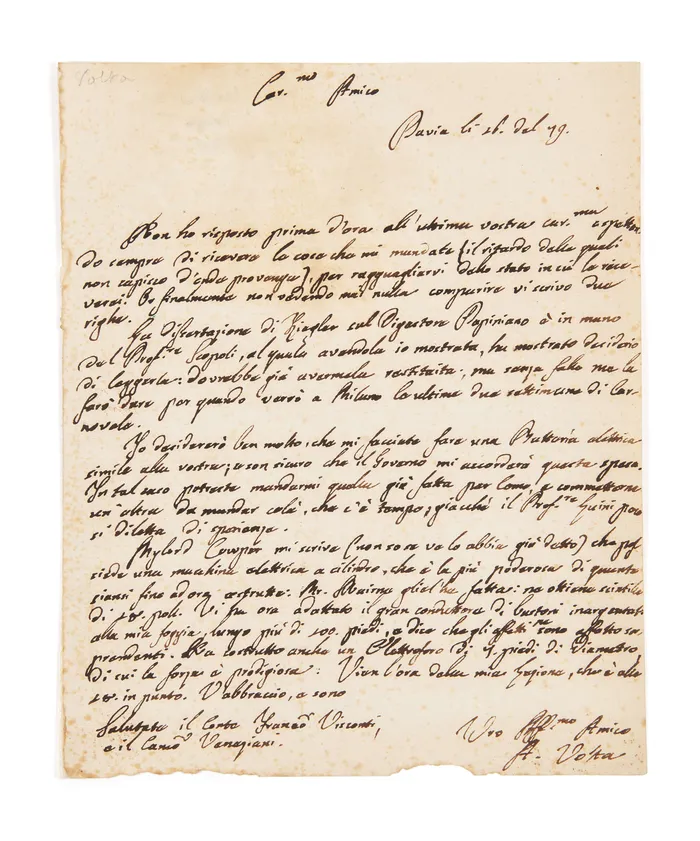 Volta
Car.mo Amico
Pavia li 26. del 79.
Non ho risposto prima d'ora all'ultima vostra car.ma aspettan-
do sempre di ricevere le cose che mi mandate (il ritardo delle quali
non capisco d'onde provenga), per ragguagliarvi dello stato in cui le rice-
verei. Or finalmente non vedendo mai nulla comparire vi scrivo due
righe.
La dissertazione di Ziegler sul Digestore Papiniano è in mano
del Prof.re Scopoli, al quale avendola io mostrata, ha mostrato desiderio
di leggerla: dovrebbe già avermela restituita, ma senza fallo me la
farò dare per quando verrò a Milano le ultime due settimane di Car-
novale.
Io desidererò ben molto, che mi facciate fare una Batteria elettrica
simile alla vostra; e son sicuro che il Governo mi accorderà questa spesa.
In tal caso potreste mandarmi quella già fatta per Como, e commetterne
un'altra da mandar colà, che c'è tempo; giacchè il Prof.re poco
si diletta di sperienze.
Mylord Cowper mi scrive (non so se ve lo abbia già detto) che pos-
siede una macchina elettrica a cilindro, che è la più poderosa di quante
siansi fino ad ora costrutte. Mr. Nairne gliel'ha fatta: ne ottiene scintille
di 18. poll. Vi ha ora adattato il gran conduttore di bastoni inargentati
alla mia foggia, lungo più di 100. piedi, e dice che gli effetti ne sono affatto sor-
prendenti. Ha costrutto anche un Elettroforo di 7. piedi di diametro,
di cui la forza è prodigiosa: Vien l'ora della mia Lezione, che è alle
18. in punto. V'abbraccio, e sono
Salutate il Conte Franc.o Visconti,
e il Canco Veneziani.
Vro Aff.mo Amico
A. Volta